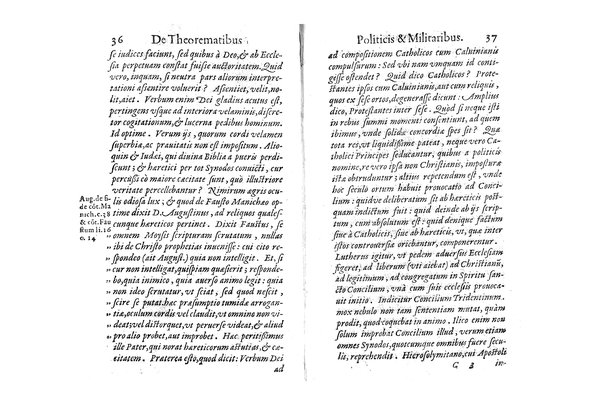 36 De Theorematibus
se iudices faciunt, sed quibus à Deo, & ab Eccle-
sia perpetuam constat fuisse auctoritatem. Quid
vero, inquam, si neutra pars aliorum interpre-
tationi assentire voluerit? Assentiet, velit, no-
lit, aiet. Verbum enim Dei gladius acutus est,
pertingens vsque ad interiora velaminis, discre-
tor cogitationum, & lucerna pedibus hominum.
Id optime. Verum ijs, quorum cordi velamen
superbia, ac prauitatis non est impositum. Alio-
quin & Iudæi, qui diuina Biblia à pueris perdi-
scunt; & hæretici per tot Synodos conuicti, cur
percussi cō maiore cæcitate sunt, quò illustriore
veritate percellebantur? Nimirum ægris ocu-
lis odiosa lux; & quod de Fausto Manichæo op-
time dixit D. Augustinus, ad reliquos quales-
cunque hæreticos pertinet. Dixit Faustus, se
omnem Moysis scripturam scrutatum, nullas
ibi de Christo prophetias inuenisse: cui cito re-
spondeo (ait August.) quia non intelligit. Et, si
cur non intelligat, quispiam quæsierit; responde-
bo, quia inimico, quia auerso animo legit: quia
non ideo scrutatur, vt sciat, sed quod nescit,
scire se putat. hæc præsumptio tumidæ arrogan-
tiæ, oculum cordis vel claudit, vt omnino non vi-
deat, vel distorquet, vt peruerse videat, & aliud
pro alio probet, aut improbet. Hæc peritissimus
ille Pater, qui norat hæreticorum astutias, & cæ-
citatem. Præterea est, quod dicit: Verbum Dei
ad
Aug. de fi-
de cōt. Ma
nich. c. 38
& cōt. Fau
stum li. 16
c. 14
Politicis & Militaribus. 37
ad compositionem Catholicos cum Caluinianis
compulsurum: Sed vbi nam vmquam id contigisse ostendet? Quid dico Catholicos? Prote-
stantes ipsos cum Caluinianis, aut cum reliquis,
quos ex sese ortos, degenerasse dicunt: Amplius
dico, Protestantes inter sese. Quòd si neque isti
in rebus summi momenti consentiunt, ad quem
ibimus, vnde solidæ concordiæ spes sit? Quæ
tota res, vt liquidissime pateat, neue vero Ca-
tholici Principes seducantur, quibus à politicis
nomine, ac re vera non Christianis, imposturæ
istæ obtruduntur; altius repetendum est, vnde
hoc sæculo ortum habuis prouocatio ad Conci-
lium: quemadmodum item sit ab hæreticis post
prouocationem factitatum: quid sibi velit hæc
postulatum fuit: quid deinde ab ijs scri-
ptum, cum absolutum esset: quid denique factum
siue à Catholicis, siue ab hæreticis, vt, quæ inter
istos controuersia oriebantur, componerentur.
Lutherus igitur, vt pedem aduersus Ecclesiam
figeret; ad liberum (vti aiebat) ad Christianū,
ad legitimum, ad congregatum in Spiritu san-
cto Concilium, vnà cum suis ecclesijs prouoca-
uit initio. Indicitur Concilium Tridentinum.
mox nebulo non tam sententiam mutat, quàm
prodit, quod coquebat in animo. Ilico enim non
solùm improbat Concilium illud, verum etiam
omnes Synodos, quotcumque omnibus fuere secu-
lis, reprehendit. Hierosolymitano, cui Apostoli
C 3 in-